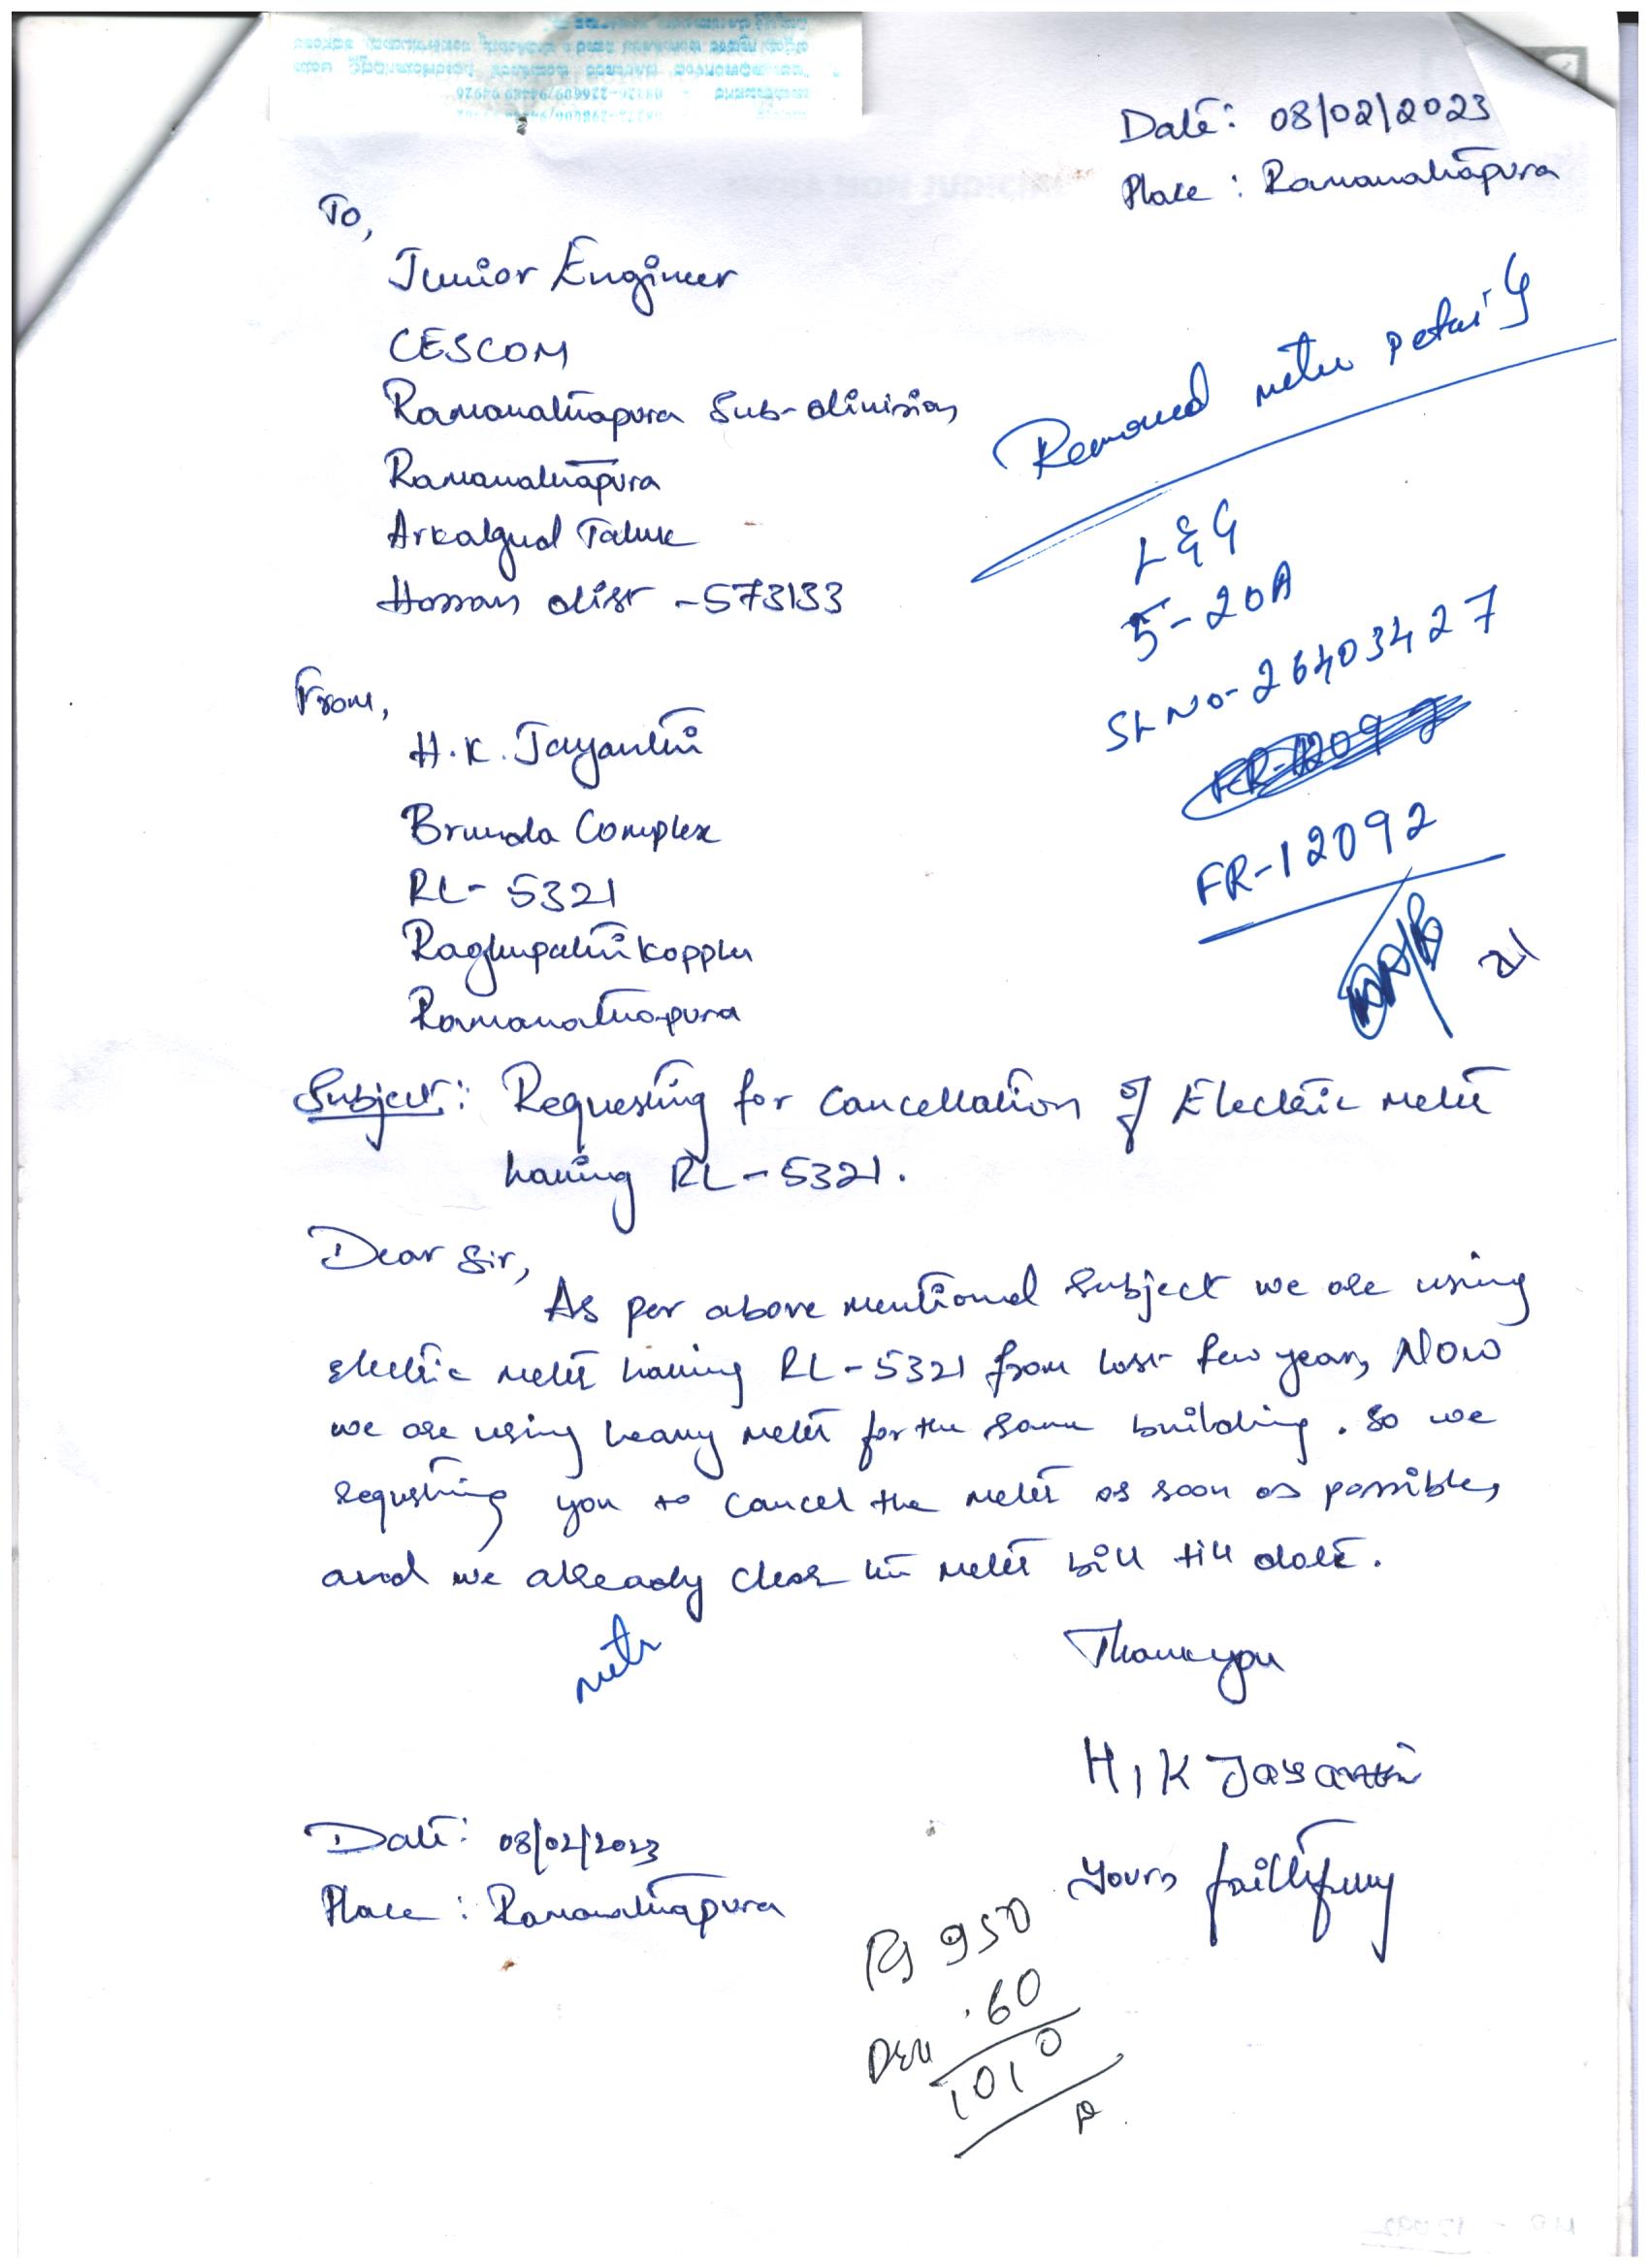 Date: 08/02/2023
Place : Ramanathapura
To,
Junior Engineer
CESCOM
Ramanathapura Sub-division,
Ramanathapura
Arkalgud Taluk
Hassan dist - 573133
Removed meter Details
L&G
5-20A
SL NO- 26403427
FR-12092
From,
H.K. Jayanthi
Brunda Complex
RL- 5321
Raghupathi kopplu
Ramanathapura
Subject: Requesting for Cancellation of Electric meter
having RL-5321.
Dear Sir,
As per above mentioned subject we are using
electric meter having RL-5321 from last few years, Now
we are using heavy meter for the same building. So we
requsting you to cancel the meter as soon as possible,
and we already clear the meter bill till date.
metr
Thank you
H.K Jayanthi
Date: 08/02/2023
Place : Ramanathapura
Yours faithfully
Rs 950
60
1010